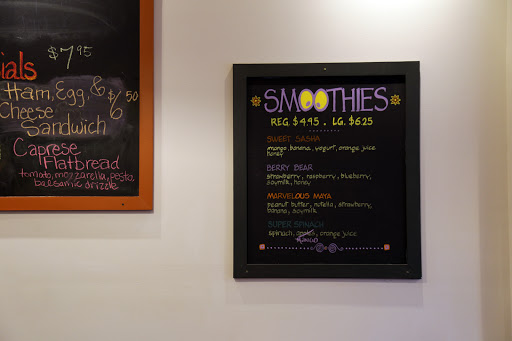 $7.95
ials
Ham, Egg, &
Cheese $6.50
Sandwich
Caprese
Flatbread
tomato, mozzarella, pesto,
balsamic drizzle
SMOOTHIES
REG. $4.95 . LG. $6.25
SWEET SASHA
mango, banana, yogurt, orange juice
honey
BERRY BEAR
strawberry, raspberry, blueberry,
soymilk, honey
MARVELOUS MAYA
peanut butter, nutella, strawberry,
banana, soymilk
SUPER SPINACH
spinach, apples, orange juice